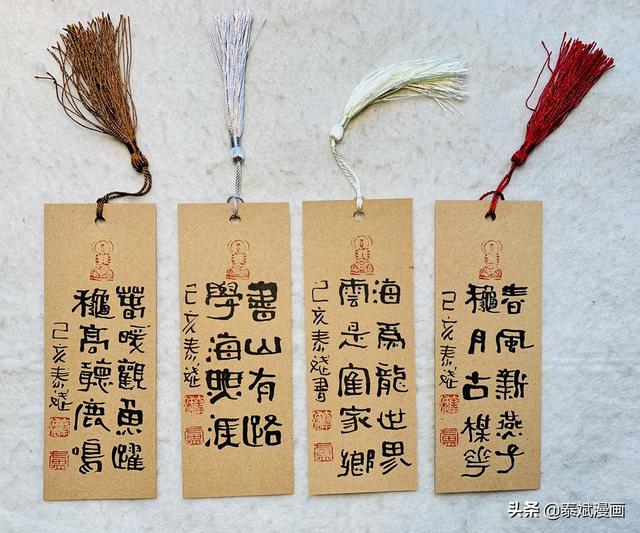 萅暖觀魚躍
龝高聽鹿鳴
己亥泰斌
書山有路
學海無涯
己亥泰斌
海爲龍世界
雲是鶴家鄉
己亥泰斌書
春風新燕子
龝月古楳花
己亥泰斌
头条 @泰斌漫画